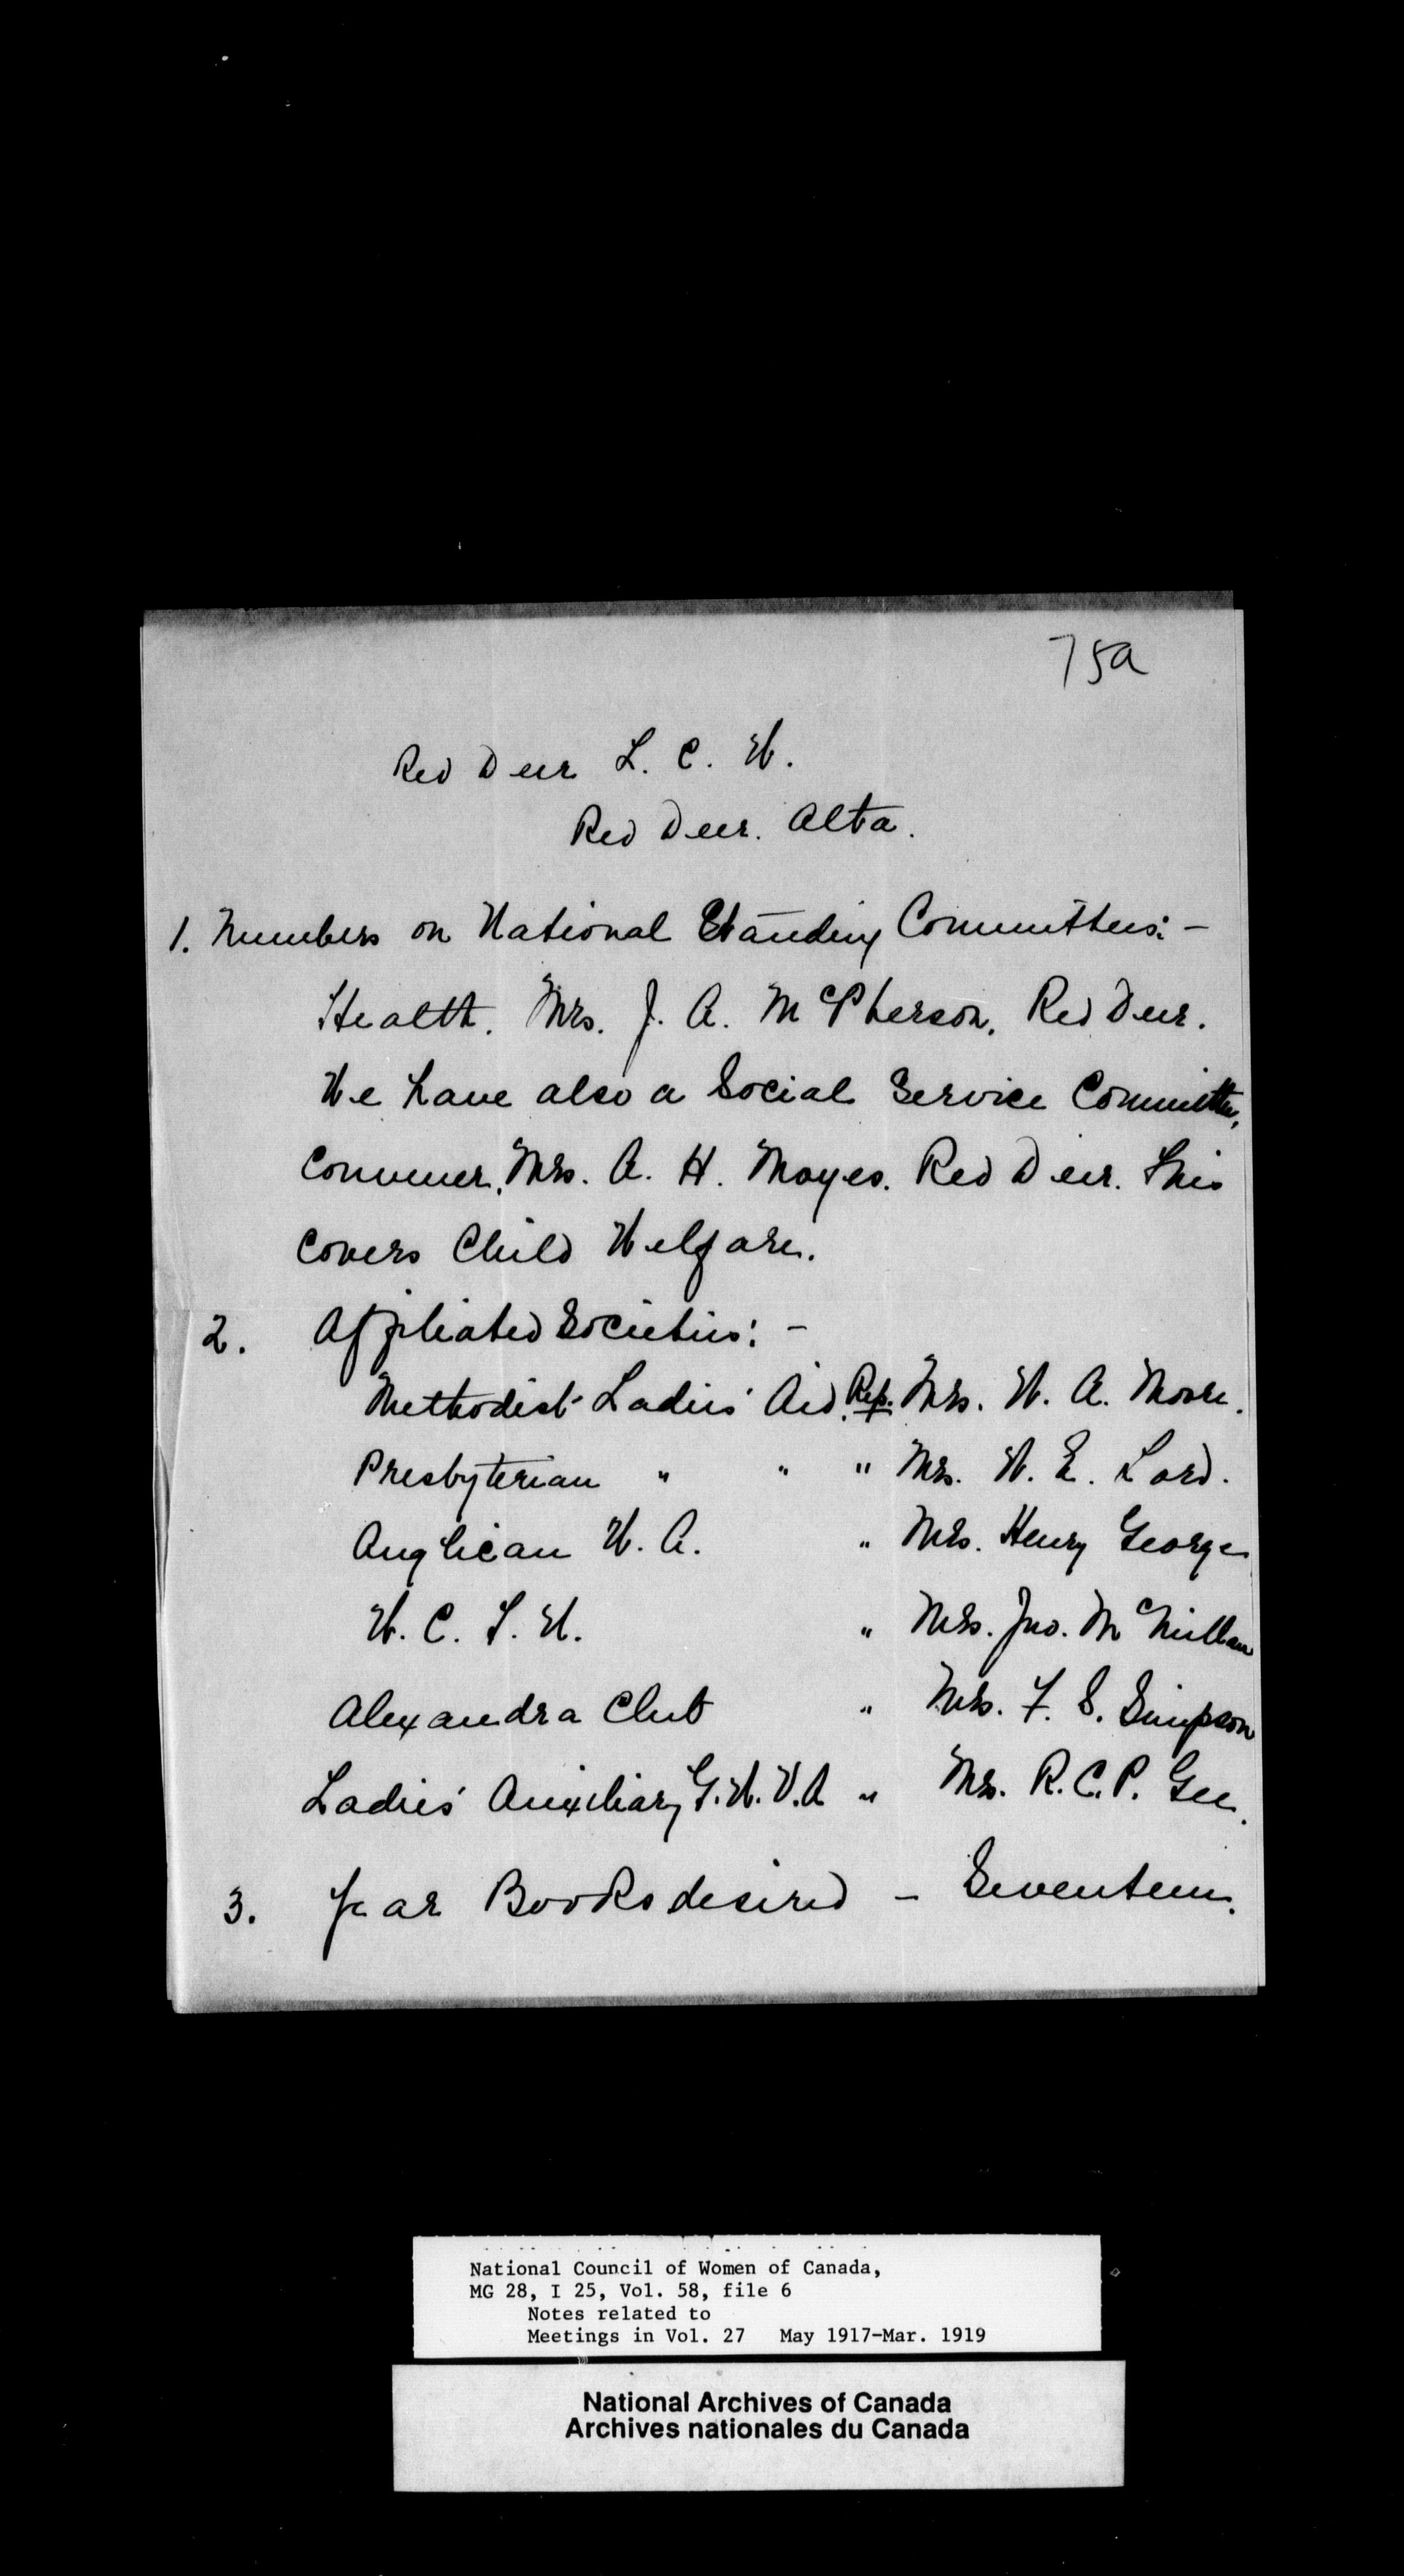 75a
Red Deer L. C. W.
Red Deer. Alta.
1. Members on National Standing Committees: -
Health. Mrs. J. A. McPherson. Red Deer.
We have also a Social Service Committee,
Convener, Mrs. A. H. Moyes. Red Deer. This
covers Child Welfare.
2. Affiliated Societies: -
Methodist Ladies' Aid. Rep. Mrs. W. A. Moore.
Presbyterian " " " Mrs. W. E. Lord.
Anglican W. A. " Mrs. Henry George
W. C. T. U. " Mrs. Jno. McMillan
Alexandra Club " Mrs. F. S. Simpson
Ladies' Auxiliary G.W.V.A " Mrs. R.C.P. Gee.
3. Year Books desired - Seventeen.
National Council of Women of Canada,
MG 28, I 25, Vol. 58, file 6
Notes related to
Meetings in Vol. 27 May 1917-Mar. 1919
National Archives of Canada
Archives nationales du Canada